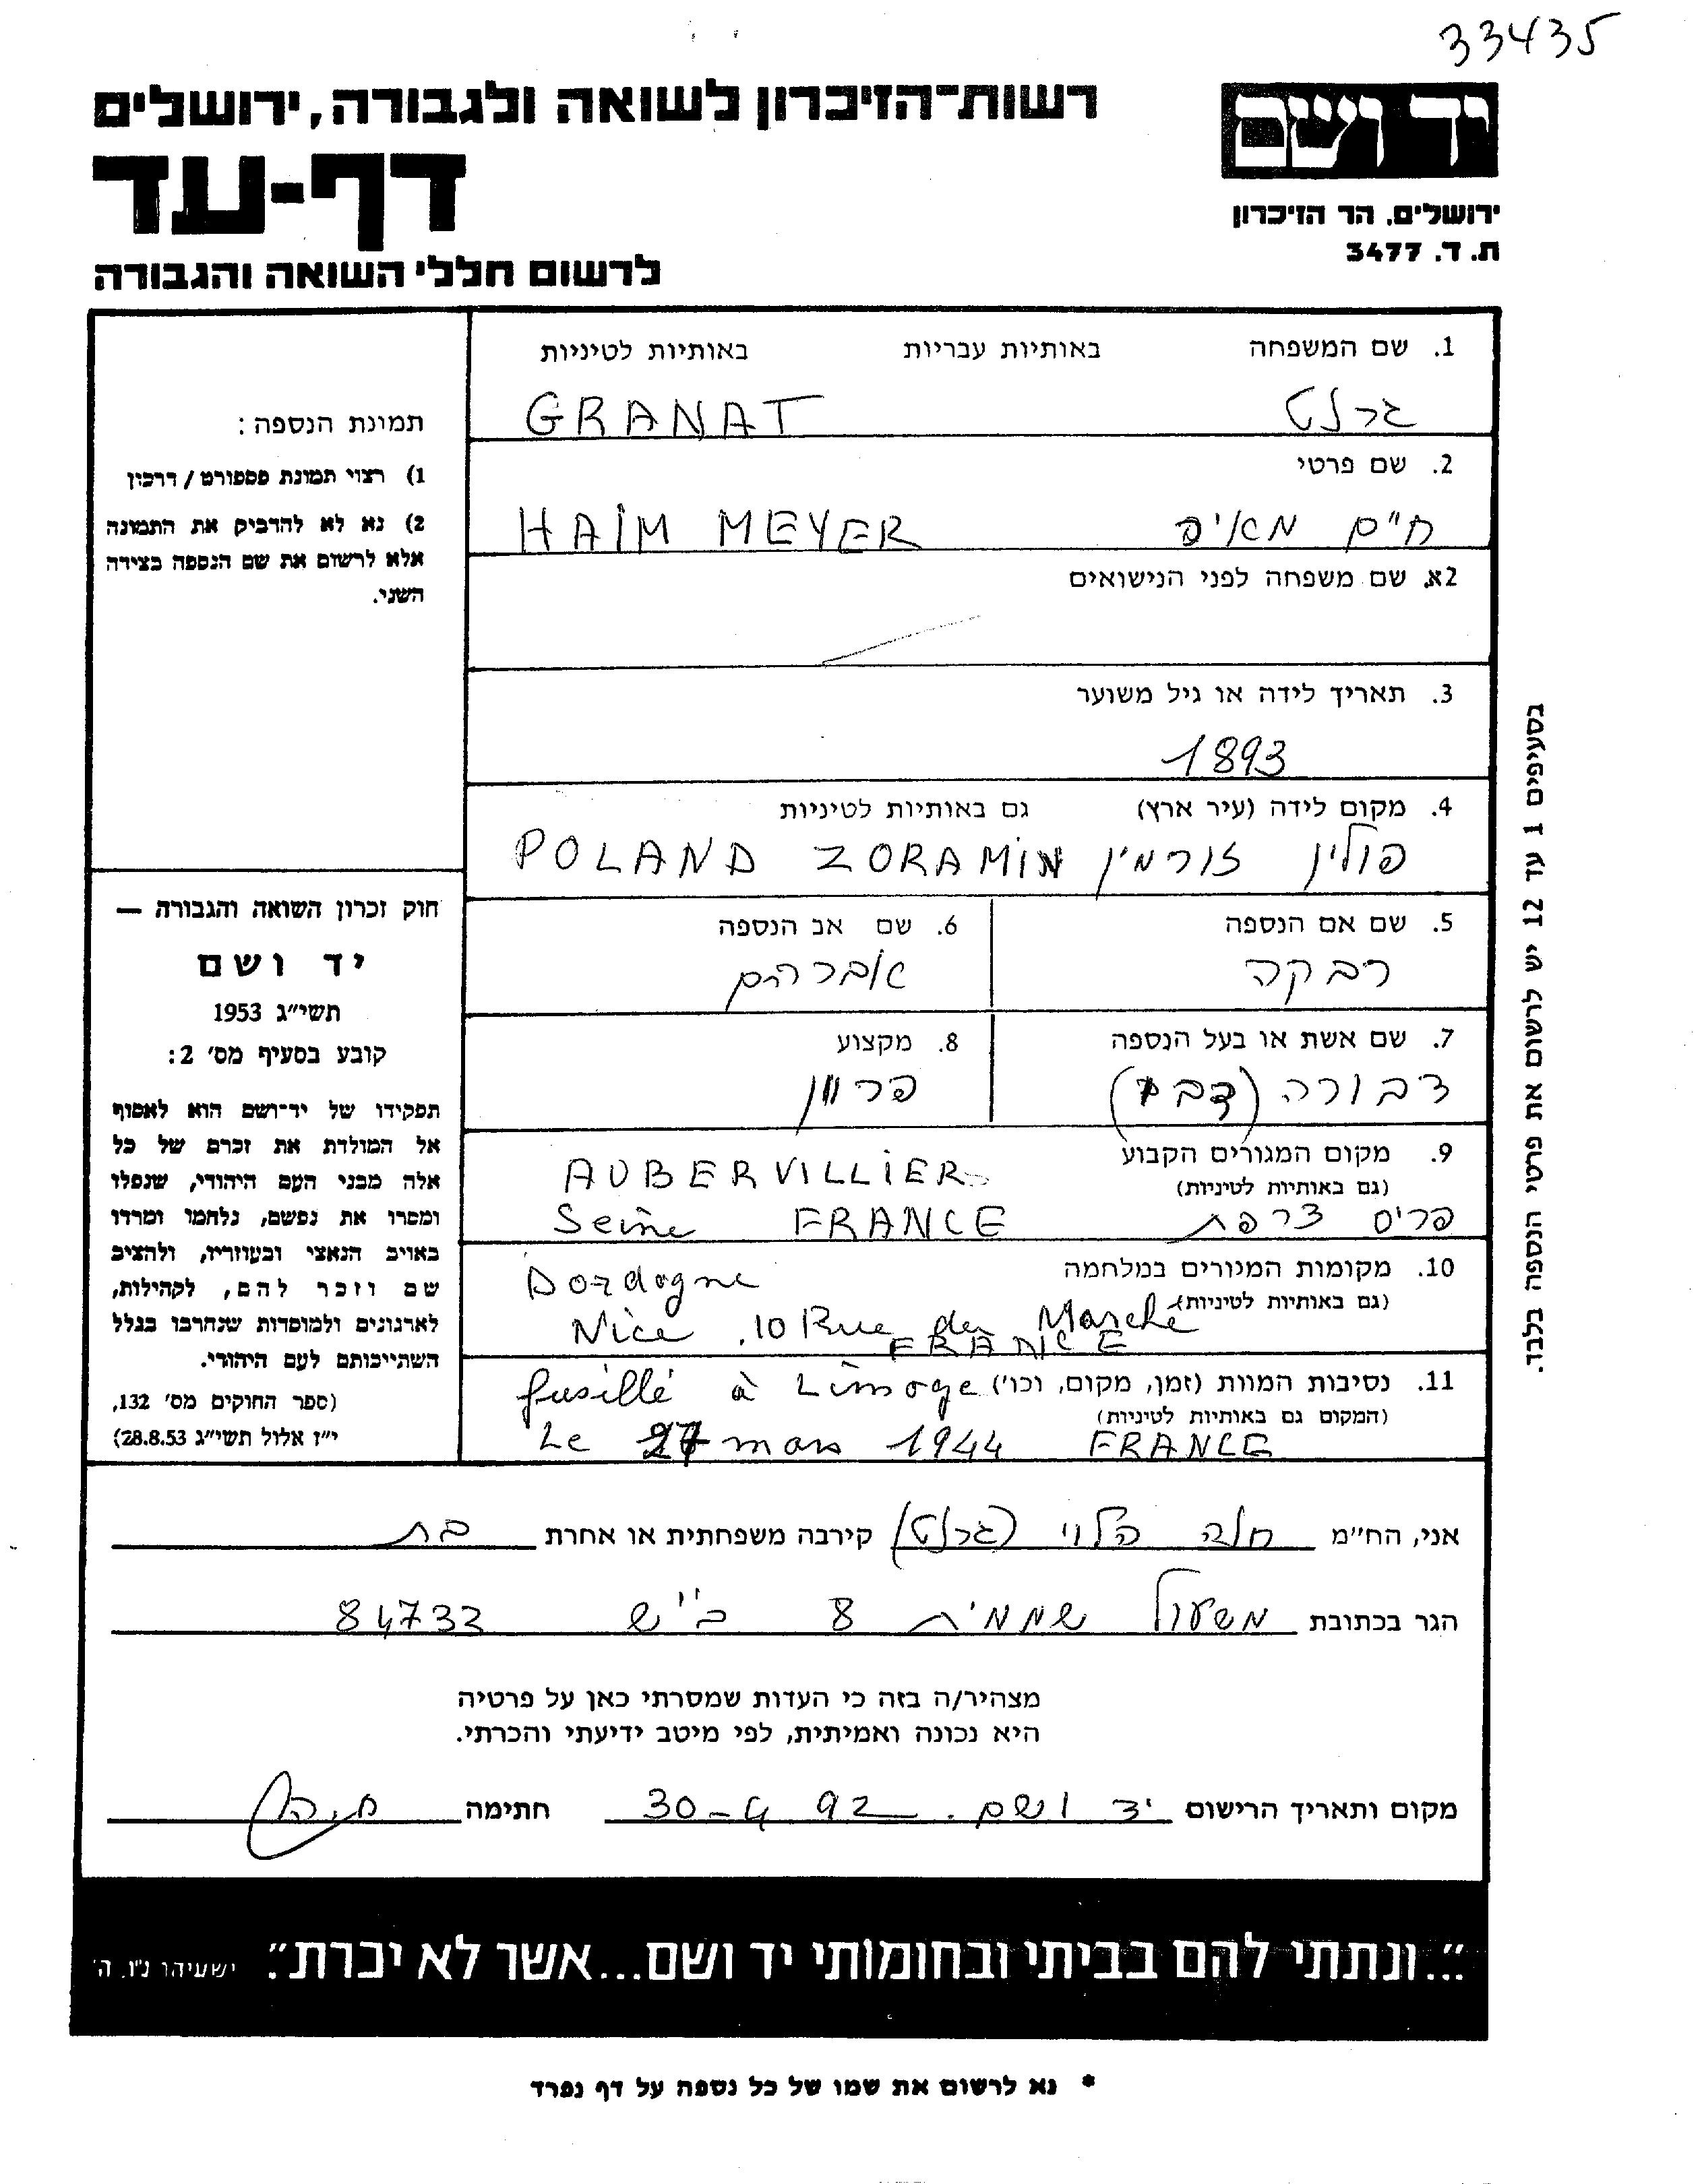 33435
יד ושם
רשות־הזיכרון לשואה ולגבורה, ירושלים
דף-עד
ירושלים. הר הזיכרון
ת. ד. 3477
לרשום חללי השואה והגבורה
1. שם המשפחה באותיות עבריות באותיות לטיניות
GRANAT
2. שם פרטי
חיים HAIM MEYER
2א. שם משפחה לפני הנישואים
3. תאריך לידה או גיל משוער
1893
4. מקום לידה (עיר ארץ) גם באותיות לטיניות
פולין זורמין POLAND ZORAMIN
5. שם אם הנספה 6. שם אב הנספה
רבקה אברהם
7. שם אשת או בעל הנספה 8. מקצוע
דבורה פרוון
9. מקום המגורים הקבוע
(גם באותיות לטיניות)
AUBERVILLIERS
פריס צרפת Seine FRANCE
10. מקומות המגורים במלחמה
(גם באותיות לטיניות)
Dordogne
Nice, 10 Rue du Marché
FRANCE
11. נסיבות המוות (זמן, מקום, וכו')
(המקום גם באותיות לטיניות)
fusillé à Limoge
Le 27 mars 1944 FRANCE
תמונת הנספה:
1) רצוי תמונת פספורט / דרכון
2) נא לא להדביק את התמונה
אלא לרשום את שם הנספה בצידה
השני.
חוק זכרון השואה והגבורה —
יד ושם
תשי״ג 1953
קובע בסעיף מס׳ 2:
תפקידו של יד־ושם הוא לאסוף
אל המולדת את זכרם של כל
אלה מבני העם היהודי, שנפלו
ומסרו את נפשם, נלחמו ומרדו
באויב הנאצי ובעוזריו, ולהציב
שם וזכר להם, לקהילות,
לארגונים ולמוסדות שנחרבו בגלל
השתייכותם לעם היהודי.
(ספר החוקים מס׳ 132,
י״ז אלול תשי״ג 28.8.53)
בסעיפים 1 עד 12 יש לרשום את פרטי הנספה בלבד.
אני, הח״מ חנה הלוי (גרנט) קירבה משפחתית או אחרת בת
הגר בכתובת משעול שממית 8 ב״ש 84733
מצהיר/ה בזה כי העדות שמסרתי כאן על פרטיה
היא נכונה ואמיתית, לפי מיטב ידיעתי והכרתי.
מקום ותאריך הרישום יד ושם. 30-4 92 חתימה
״...ונתתי להם בביתי ובחומותי יד ושם...אשר לא יכרת״. ישעיהו נ״ו, ה׳
* נא לרשום את שמו של כל נספה על דף נפרד